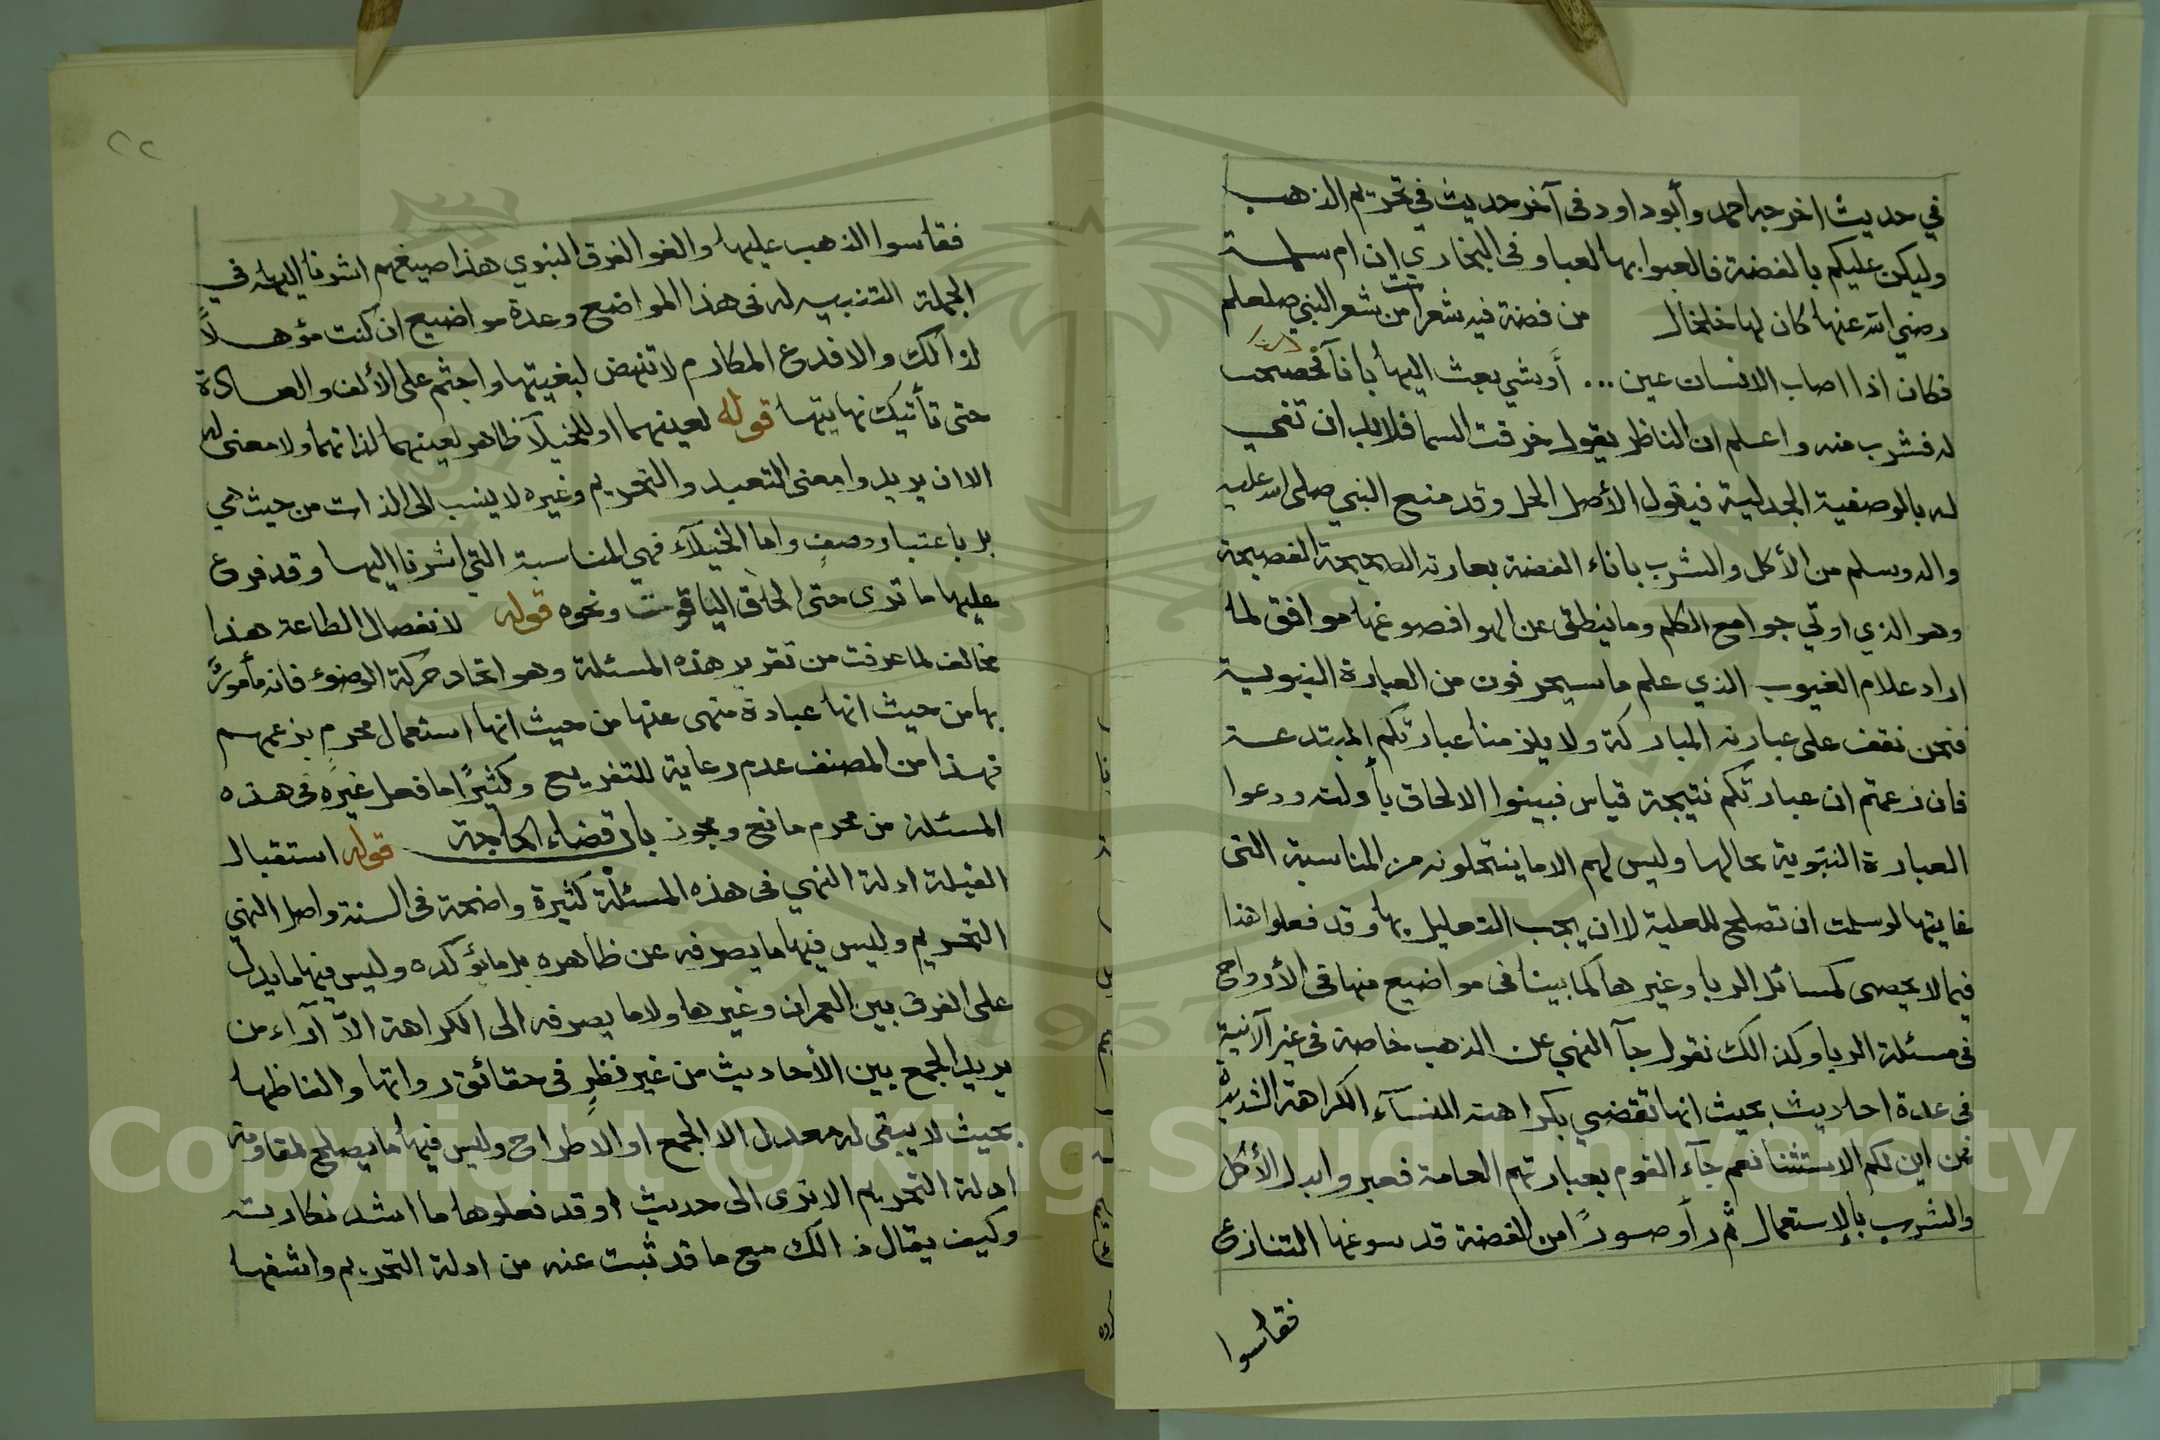 في حديث اخرجه احمد وأبو داود في آخر حديث في تحريم الذهب
وليكن عليكم بالفضة فالعبوا بها لعبا وفي البخاري ان ام سلمة
رضي الله عنها كان لها خلخال من فضة فيه شعرات من شعر النبي صلعلم
فكان اذا اصاب الانسان عين ... أو شي بعث اليها باناء فخصحصت
له فشرب منه واعلم ان الناظر يقول خرقت السما فلا بد ان تفي
له بالوصفية الجدلية فيقول الأصل الحل وقد منع النبي صلى الله عليه
واله وسلم من الأكل والشرب باناء الفضة بعبارته الصحيحة الفصيحة
وهو الذي اوتي جوامع الكلم وما ينطق عن الهوا فصوغها موافق لما
اراد علام الغيوب الذي علم ما سيحرفون من العبارة النبوية
فنحن نقف على عبارته المباركة ولا يلزمنا عبارتكم المبتدعة
فان زعمتم ان عبارتكم نتيجة قياس فبينوا الالحاق بأدلته ودعوا
العبارة النبوية بحالها وليس لهم الا ما ينتحلونه من المناسبة التي
غايتها لو سلمت ان تصلح للعلية لا ان يجب التعليل بها وقد فعلوا هذا
فيما لا يحصى كمسائل الربا وغيرها كما بينا في مواضيع منها في الأرواح
في مسئلة الربا وكذالك نقول جآ النهي عن الذهب خاصة في غير الآنية
في عدة احاديث بحيث انها تقضي بكراهته للنسآء الكراهة الشديدة
فمن اين لكم الاستثنا نعم جآء القوم بعبارتهم العامة فعبروا بدل الأكل
والشرب بالإستعمال ثم رأو صورًا من الفضة قد سوغها التنازع
فقاسوا
٢٢
فقاسوا الذهب عليها والغو الفرق النبوي هذا صيغهم اشرفا اليها في
الجملة التنبيه له في هذا المواضع وعدة مواضيع ان كنت مؤهلاً
لذالك والا فدع المكارم لا تنهض لبغيتها واجثم على الألف والعادة
حتى تأتيك نهايتها قوله لعينهما او للخيلآ ظاهر لعينهما لذاتهما ولا معنى له
الا ان يريدوا معنى التعبد والتحريم وغيره لا ينسب الى الذات من حيث هي
بل باعتبار وصف واما الخيلآء فهي المناسبة التي اشرنا اليها وقد فرع
عليها ما ترى حتى الحاق الياقوت ونحوه قوله لانفصال الطاعة هذا
مخالف لما عرفت من تقرير هذه المسئلة وهو اتحاد حركة الوضوء فانه مأمورٌ
بها من حيث انها عبادة منهى عنها من حيث انها استعمال محرم بزعمهم
فهذا من المصنف عدم رعاية للتفريع وكثيرًا ما فعل غيره في هذه
المسئلة من محرم مانع ومجوز باب قضاء الحاجة قوله استقبال
القبلة ادلة النهي في هذه المسئلة كثيرة واضحة في السنة واصل النهي
التحريم وليس فيها ما يصرفه عن ظاهره بل ما يؤكده وليس فيها ما يدل
على الفرق بين العمران وغيرها ولا ما يصرفه الى الكراهة الاّ آراء من
يريد الجمع بين الأحاديث من غير نظرٍ في حقائق رواتها والفاظها
بحيث لا يبقى له معدل الا الجمع او الاطراح وليس فيها ما يصلح لمقاومة
ادلة التحريم الا ترى الى حديث او قد فعلوها ما اشد نكارته
وكيف يقال ذالك مع ما قد ثبت عنه من ادلة التحريم واشفها
Copyright © King Saud University
1957